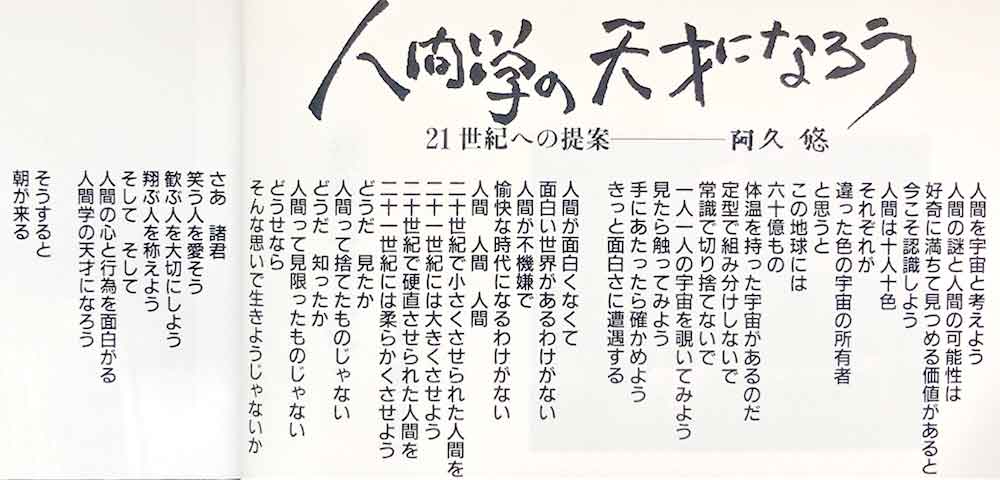 人間学の天才になろう
21世紀への提案――――阿久 悠
人間を宇宙と考えよう
人間の謎と人間の可能性は
好奇に満ちて見つめる価値があると
今こそ認識しよう
人間は十人十色
それぞれが
違った色の宇宙の所有者
と思うと
この地球には
六十億もの
体温を持った宇宙があるのだ
定型で組み分けしないで
常識で切り捨てないで
一人一人の宇宙を覗いてみよう
見たら触ってみよう
手にあたったら確かめよう
きっと面白さに遭遇する
人間が面白くなくて
面白い世界があるわけがない
人間が不機嫌で
愉快な時代になるわけがない
人間 人間 人間
二十世紀で小さくさせられた人間を
二十一世紀には大きくさせよう
二十世紀で硬直させられた人間を
二十一世紀には柔らかくさせよう
どうだ 見たか
人間って捨てたものじゃない
どうだ 知ったか
人間って見限ったものじゃない
どうせなら
そんな思いで生きようじゃないか
さあ 諸君
笑う人を愛そう
歓ぶ人を大切にしよう
翔ぶ人を称えよう
そして そして
人間の心と行為を面白がる
人間学の天才になろう
そうすると
朝が来る